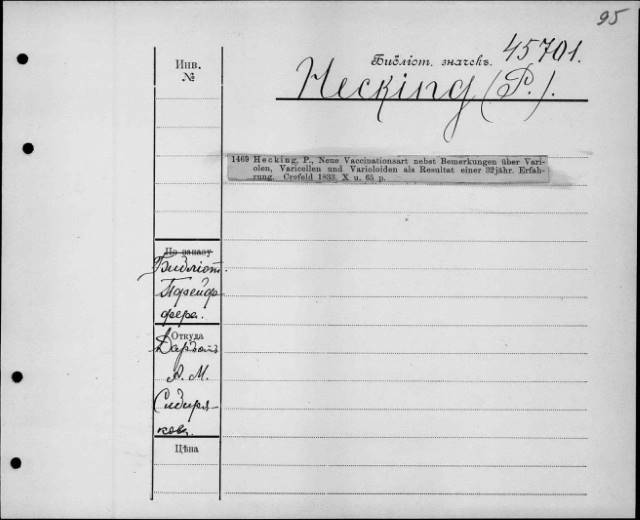 95
Инв.
№
Библіот. значекъ. 45701.
Hecking (P.).
1469 Hecking, P., Neue Vaccinationsart nebst Bemerkungen über Vari-
olen, Varicellen und Varioloiden als Resultat einer 32jähr. Erfah-
rung. Crefeld 1833. X u. 65 p.
По каталу
Библіот.
Пфейф-
фера.
Откуда
Даръ отъ
А. М.
Сибиря-
кова.
Цѣна